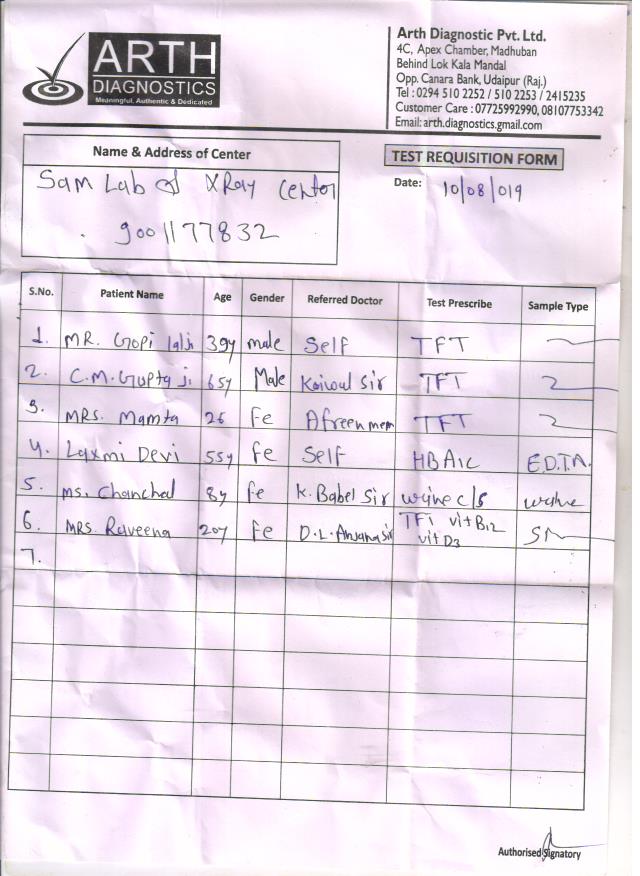 ARTH
DIAGNOSTICS
Meaningful, Authentic & Dedicated
Arth Diagnostic Pvt. Ltd.
4C, Apex Chamber, Madhuban
Behind Lok Kala Mandal
Opp. Canara Bank, Udaipur (Raj.)
Tel : 0294 510 2252 / 510 2253 / 2415235
Customer Care : 07725992990, 08107753342
Email: arth.diagnostics.gmail.com
Name & Address of Center
Sam Lab & XRay Center
9001177832
TEST REQUISITION FORM
Date: 10/08/019
S.No. Patient Name Age Gender Referred Doctor Test Prescribe Sample Type
1. MR. Gopi lalji 39y male Self TFT
2. C.M. Gupta ji 65y Male Sir TFT
3. MRS. Mamta 26 Fe Afreen mem TFT
4. Laxmi Devi 55y Fe Self HBA1C E.D.T.A.
5. ms. Chanchal 8y Fe K. Babel Sir urine c/s urine
6. MRS. Raveena 20y Fe D.L. Anjana Sir TFT vit B12
vit D3
7.
Authorised Signatory